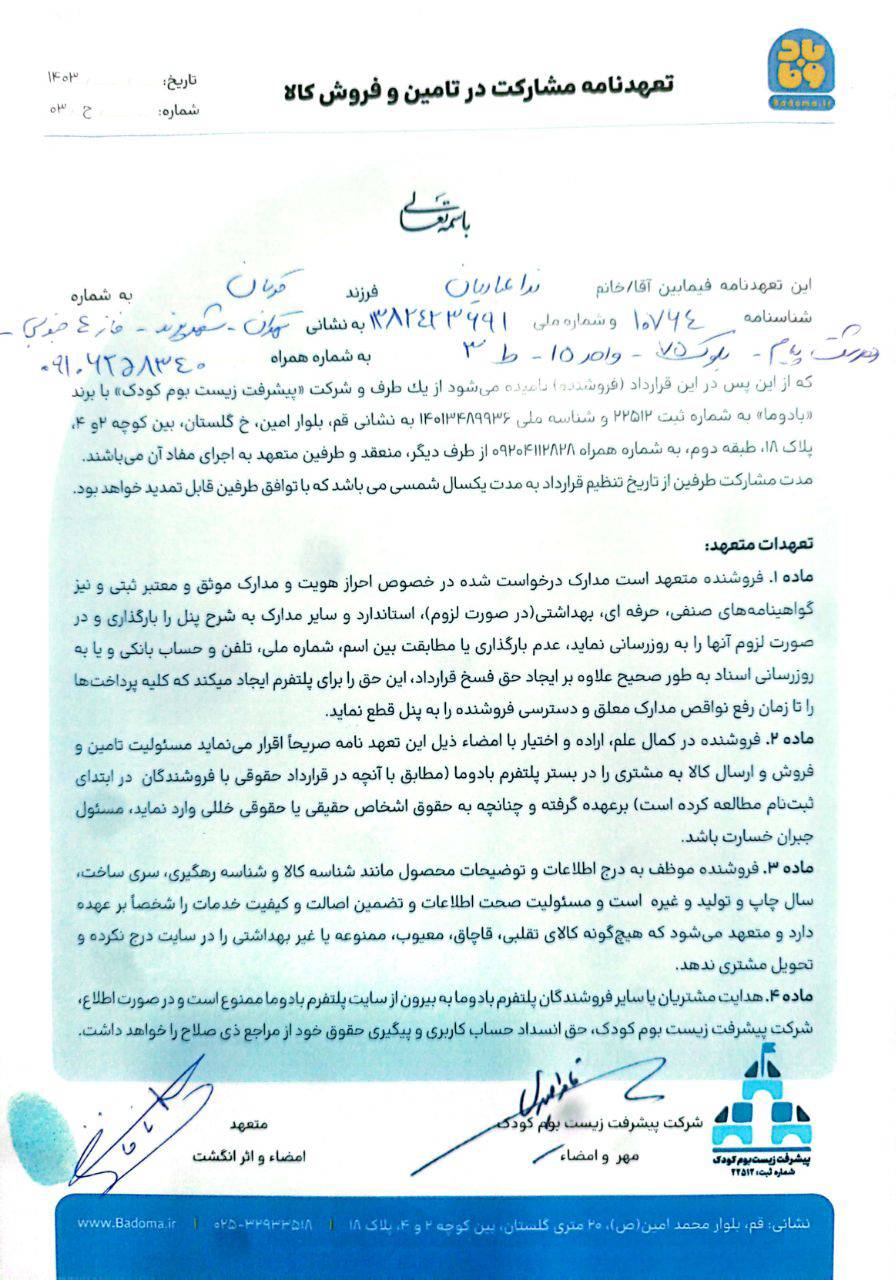 باد و ما
Badoma.ir
تعهدنامه مشارکت در تامین و فروش کالا
تاریخ: ۱۴۰۳
شماره: ح ۰۳
باسمه تعالی
این تعهدنامه فیمابین آقا/خانم ندا عباریان فرزند به شماره
شناسنامه ۱۰۷۶۴ و شماره ملی به نشانی تهران - شهرک پرند - فاز ۴ جنوبی -
پیام - بلوک ۷۵ - واحد ۱۵ - ط ۳ به شماره همراه
که از این پس در این قرارداد (فروشنده) نامیده می‌شود از یك طرف و شرکت «پیشرفت زیست بوم کودک» با برند
«بادوما» به شماره ثبت ۲۲۵۱۲ و شناسه ملی ۱۴۰۱۳۴۸۹۹۳۶ به نشانی قم، بلوار امین، خ گلستان، بین کوچه ۲و ۴،
پلاک ۱۸، طبقه دوم، به شماره همراه ۰۹۲۰۴۱۱۲۸۲۸ از طرف دیگر، منعقد و طرفین متعهد به اجرای مفاد آن می‌باشند.
مدت مشارکت طرفین از تاریخ تنظیم قرارداد به مدت یکسال شمسی می باشد که با توافق طرفین قابل تمدید خواهد بود.
تعهدات متعهد:
ماده ۱. فروشنده متعهد است مدارک درخواست شده در خصوص احراز هویت و مدارک موثق و معتبر ثبتی و نیز
گواهینامه‌های صنفی، حرفه ای، بهداشتی(در صورت لزوم)، استاندارد و سایر مدارک به شرح پنل را بارگذاری و در
صورت لزوم آنها را به روزرسانی نماید، عدم بارگذاری یا مطابقت بین اسم، شماره ملی، تلفن و حساب بانکی و یا به
روزرسانی اسناد به طور صحیح علاوه بر ایجاد حق فسخ قرارداد، این حق را برای پلتفرم ایجاد میکند که کلیه پرداخت‌ها
را تا زمان رفع نواقص مدارک معلق و دسترسی فروشنده را به پنل قطع نماید.
ماده ۲. فروشنده در کمال علم، اراده و اختیار با امضاء ذیل این تعهد نامه صریحاً اقرار می‌نماید مسئولیت تامین و
فروش و ارسال کالا به مشتری را در بستر پلتفرم بادوما (مطابق با آنچه در قرارداد حقوقی با فروشندگان در ابتدای
ثبت‌نام مطالعه کرده است) برعهده گرفته و چنانچه به حقوق اشخاص حقیقی یا حقوقی خللی وارد نماید، مسئول
جبران خسارت باشد.
ماده ۳. فروشنده موظف به درج اطلاعات و توضیحات محصول مانند شناسه کالا و شناسه رهگیری، سری ساخت،
سال چاپ و تولید و غیره است و مسئولیت صحت اطلاعات و تضمین اصالت و کیفیت خدمات را شخصاً بر عهده
دارد و متعهد می‌شود که هیچ‌گونه کالای تقلبی، قاچاق، معیوب، ممنوعه یا غیر بهداشتی را در سایت درج نکرده و
تحویل مشتری ندهد.
ماده ۴. هدایت مشتریان یا سایر فروشندگان پلتفرم بادوما به بیرون از سایت پلتفرم بادوما ممنوع است و در صورت اطلاع،
شرکت پیشرفت زیست بوم کودک، حق انسداد حساب کاربری و پیگیری حقوق خود از مراجع ذی صلاح را خواهد داشت.
شرکت پیشرفت زیست بوم کودک
مهر و امضاء
متعهد
امضاء و اثر انگشت
پیشرفت زیست بوم کودک
شماره ثبت: ۲۲۵۱۲
نشانی: قم، بلوار محمد امین(ص)، ۲۰ متری گلستان، بین کوچه ۲ و ۴، پلاک ۱۸ | ۰۲۵-۳۲۹۳۳۵۱۸ | www.Badoma.ir